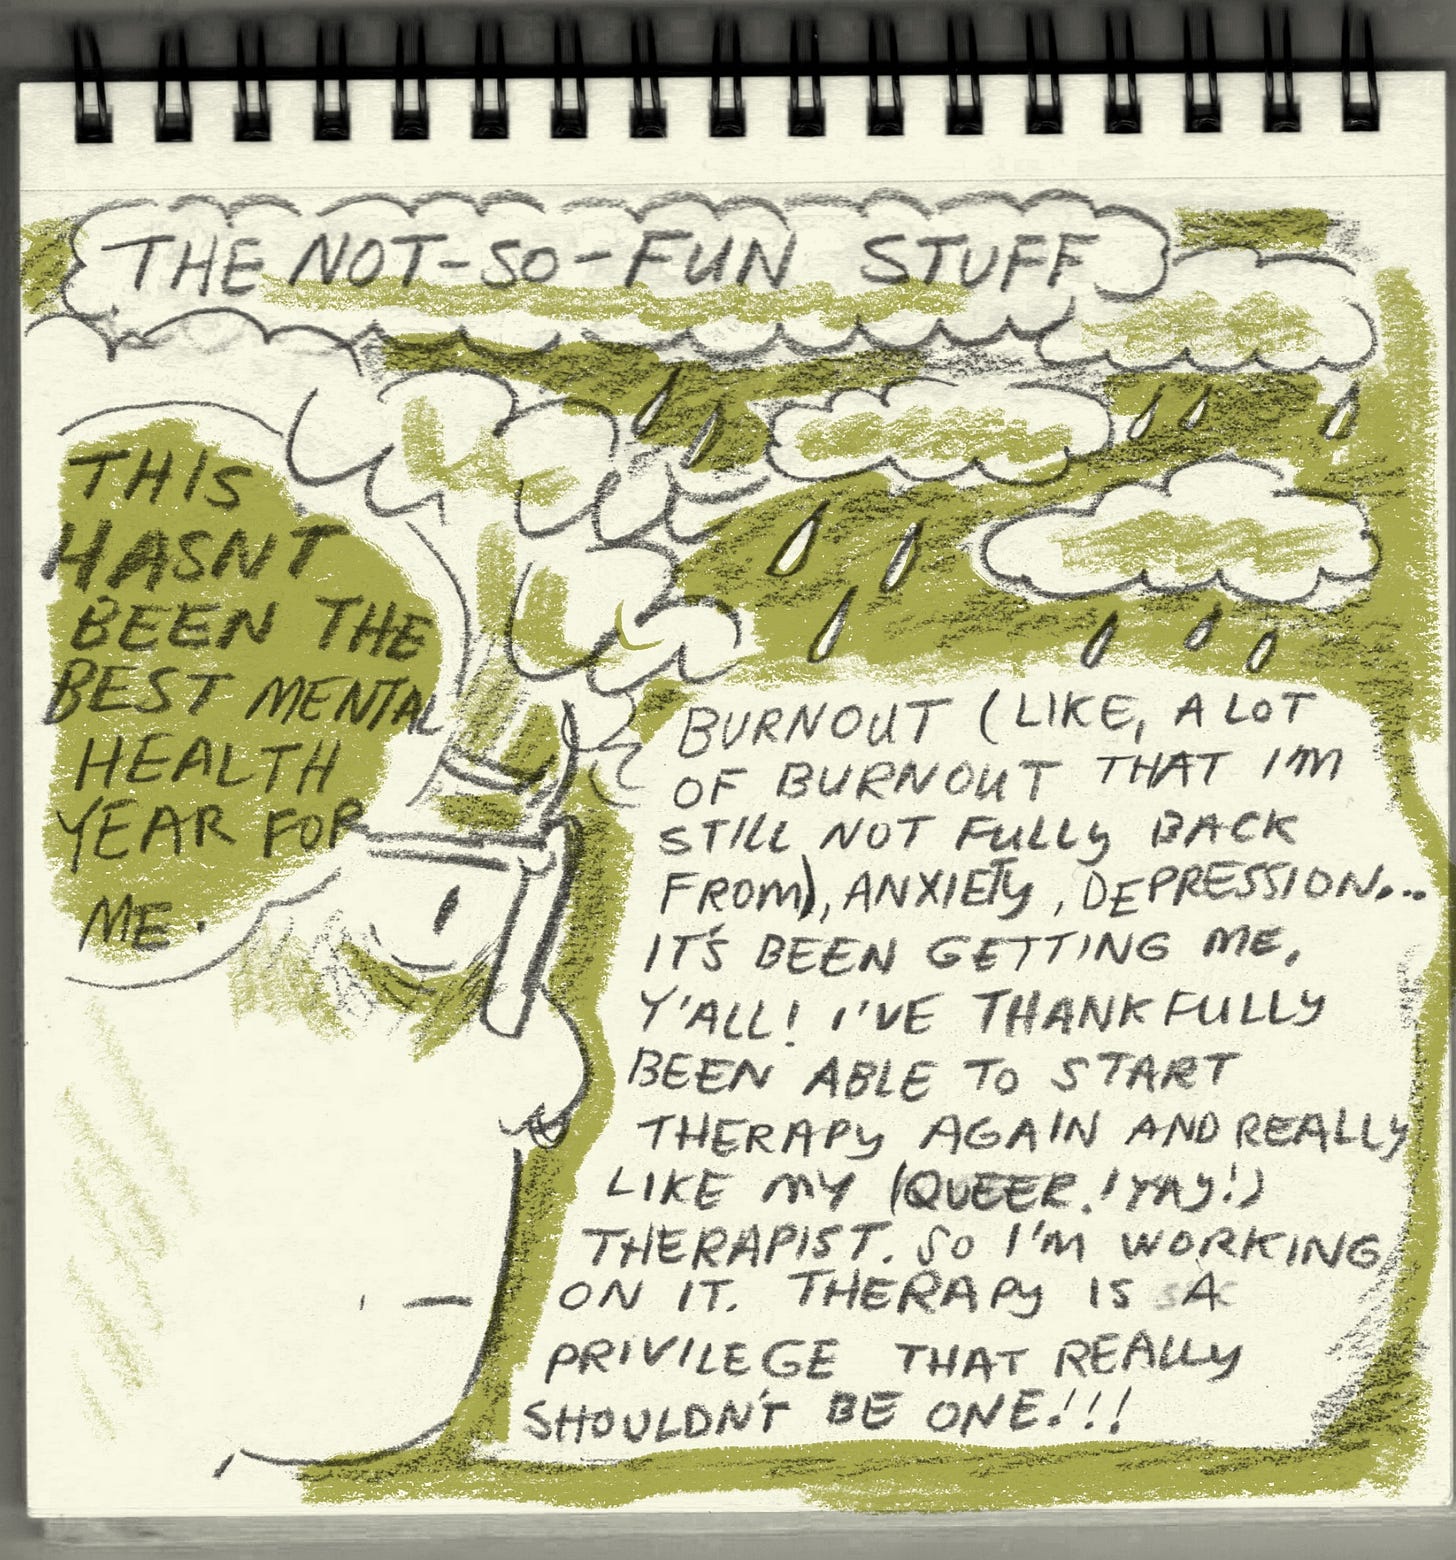 THE NOT-SO-FUN STUFF
THIS
HASNT
BEEN THE
BEST MENTAL
HEALTH
YEAR FOR
ME.
BURNOUT (LIKE, A LOT
OF BURNOUT THAT I'M
STILL NOT FULLY BACK
FROM), ANXIETY, DEPRESSION...
IT'S BEEN GETTING ME,
Y'ALL! I'VE THANKFULLY
BEEN ABLE TO START
THERAPY AGAIN AND REALLY
LIKE MY (QUEER! YAY!)
THERAPIST. SO I'M WORKING
ON IT. THERAPY IS A
PRIVILEGE THAT REALLY
SHOULDN'T BE ONE!!!